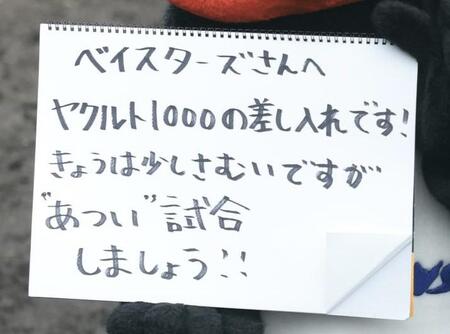 ベイスターズさんへ
ヤクルト1000の差し入れです!
きょうは少しさむいですが
"あつい"試合
しましょう!!